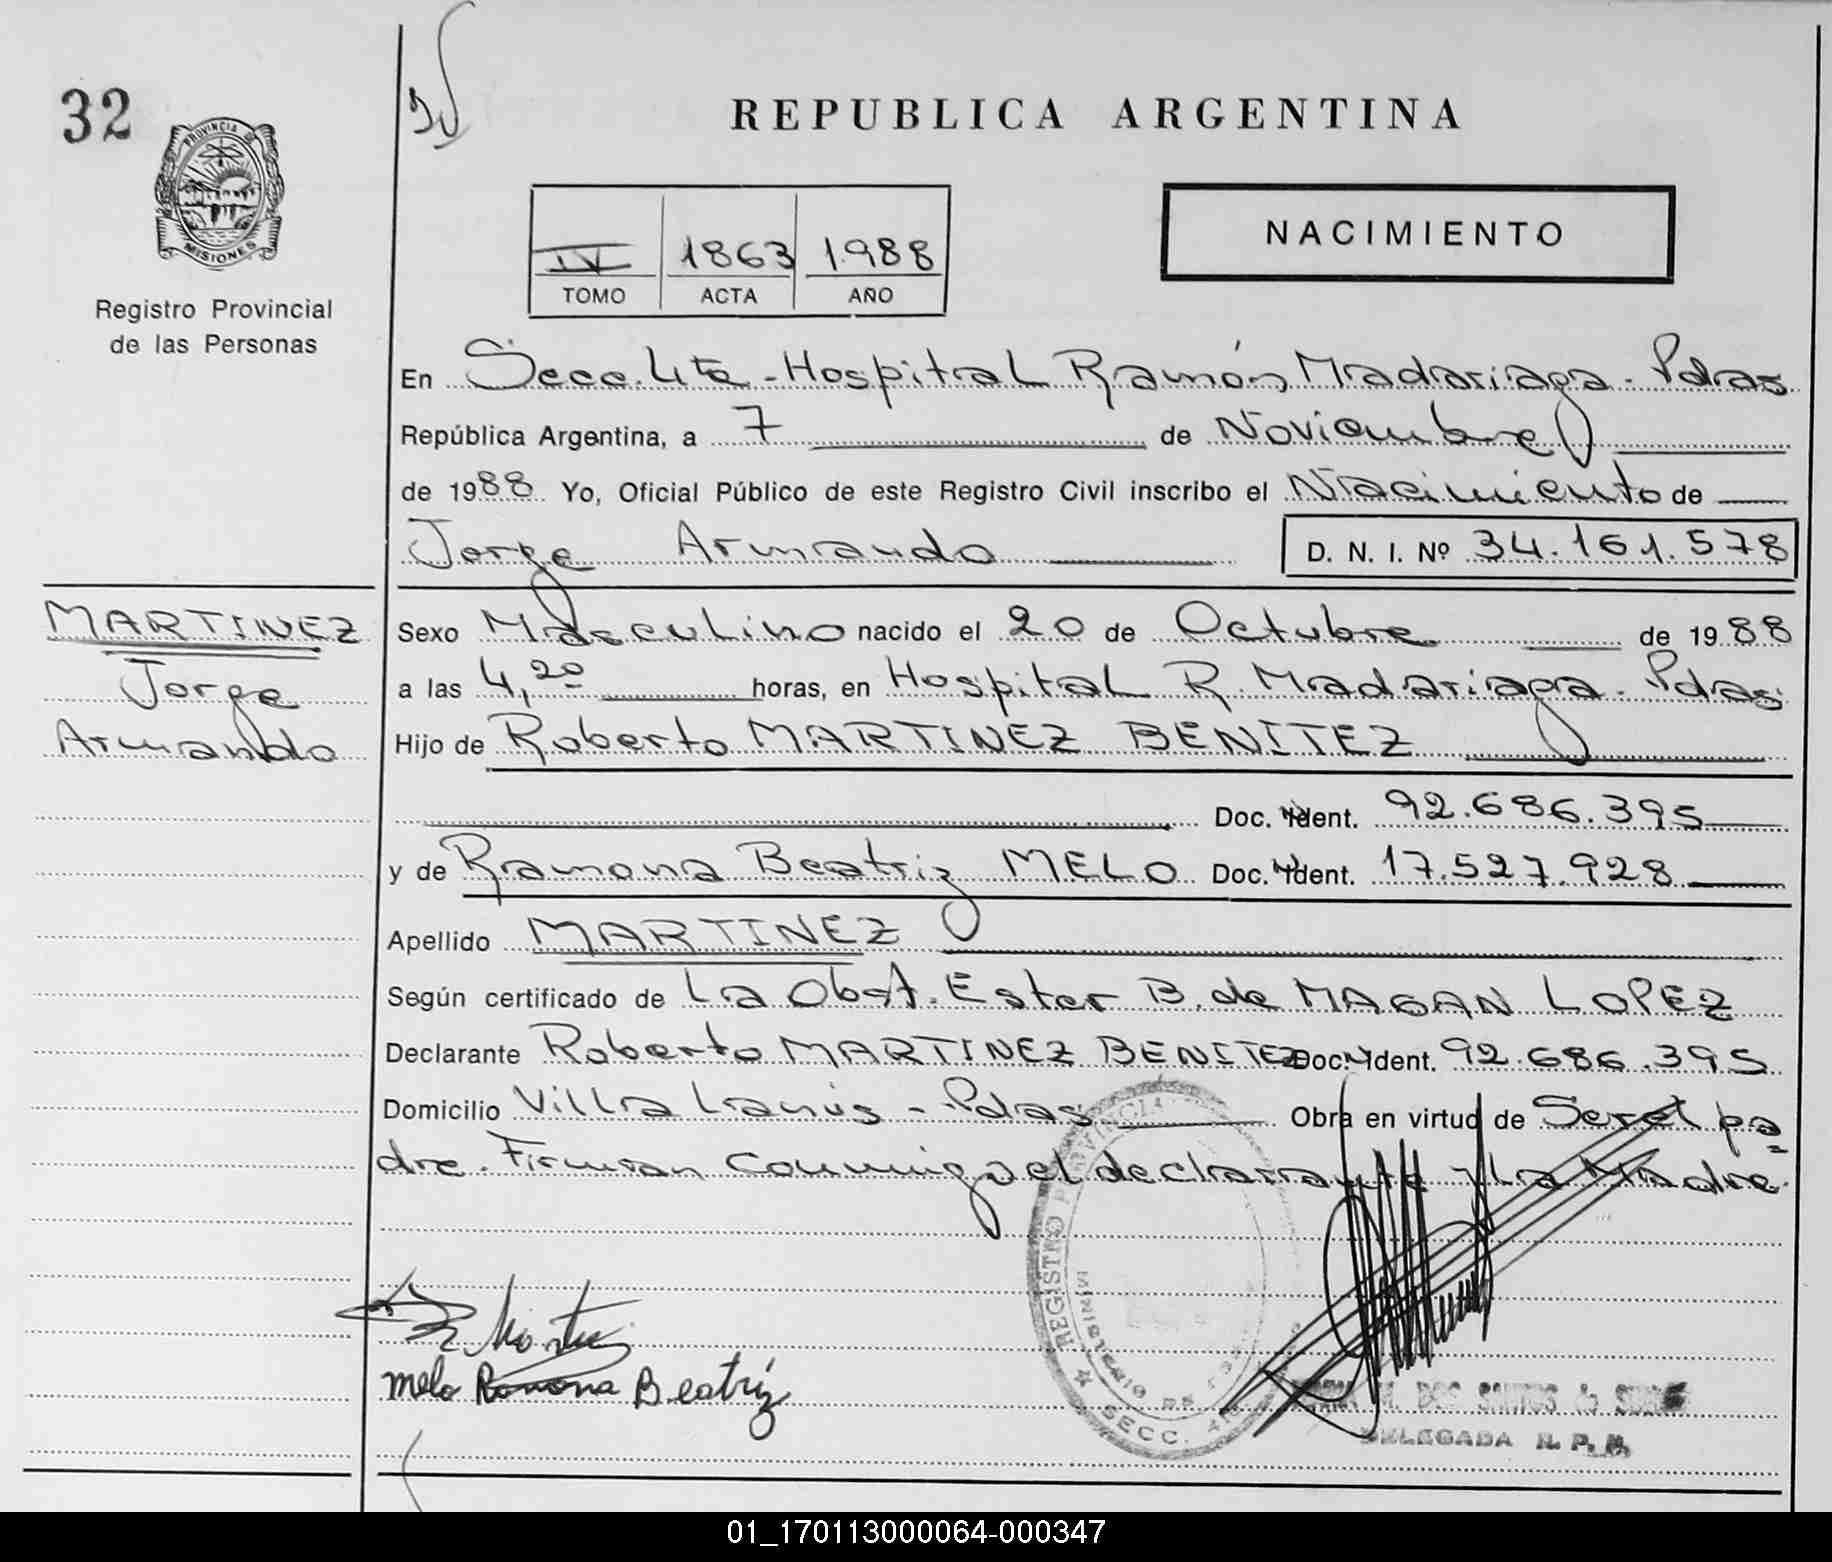 32
PROVINCIA DE
MISIONES
Registro Provincial
de las Personas
REPUBLICA ARGENTINA
NACIMIENTO
IV 1863 1988
TOMO ACTA AÑO
En Secc. 4ta - Hospital Ramón Madariaga - Pdas
República Argentina, a 7 de Noviembre
de 1988 Yo, Oficial Público de este Registro Civil inscribo el Nacimiento de
Jorge Armando D. N. I. Nº 34.161.578
MARTINEZ
Jorge
Armando
Sexo Masculino nacido el 20 de Octubre de 1988
a las 4,20 horas, en Hospital R. Madariaga - Pdas
Hijo de Roberto MARTINEZ BENITEZ
Doc. Ident. 92.686.395
y de Ramona Beatriz MELO Doc. Ident. 17.527.928
Apellido MARTINEZ
Según certificado de La Obst. Ester B. de MAGAN LOPEZ
Declarante Roberto MARTINEZ BENITEZ Doc. Ident. 92.686.395
Domicilio Villa Lanús - Pdas Obra en virtud de Ser el pa
dre. Firman conmigo el declarante y la Madre.
melo Ramona Beatriz
REGISTRO PROVINCIAL
SECC.
M. DOS SANTOS de
DELEGADA R. P. P.
01_170113000064-000347